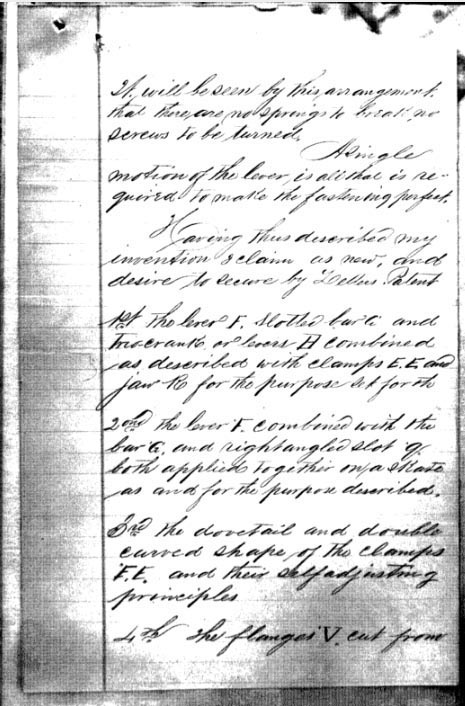 It, will be seen by this, arrangement,
that there, are no springs to break, no
screws to be turned.
A single
motion of the lever, is all that is re-
quired to make the fastening perfect.
Having thus described my
invention I claim as new, and
desire to secure by Letters Patent
1st The lever F. slotted bar G and
two crank or levers H combined
as described with clamps E.E. and
jaw K for the purpose set forth
2nd the lever F. combined with the
bar G. and right angled slot g.
both applied together on a skate
as and for the purpose described.
3rd the dovetail and double
curved shape of the clamps
E.E. and their self adjusting
principles
4th The flanges V. cut from